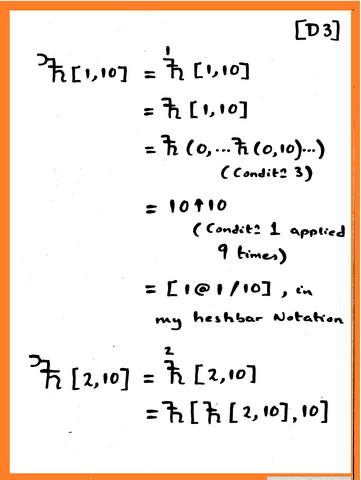 [D3]
Ɔћ [1,10] = ¹ћ [1,10]
= ћ [1,10]
= ћ (0,...ћ (0,10)...)
(Condit: 3)
= 10↑10
(Condit: 1 applied
9 times)
= [1@1/10], in
my heshbar Notation
Ɔћ [2,10] = ²ћ [2,10]
= ћ [ћ [2,10],10]